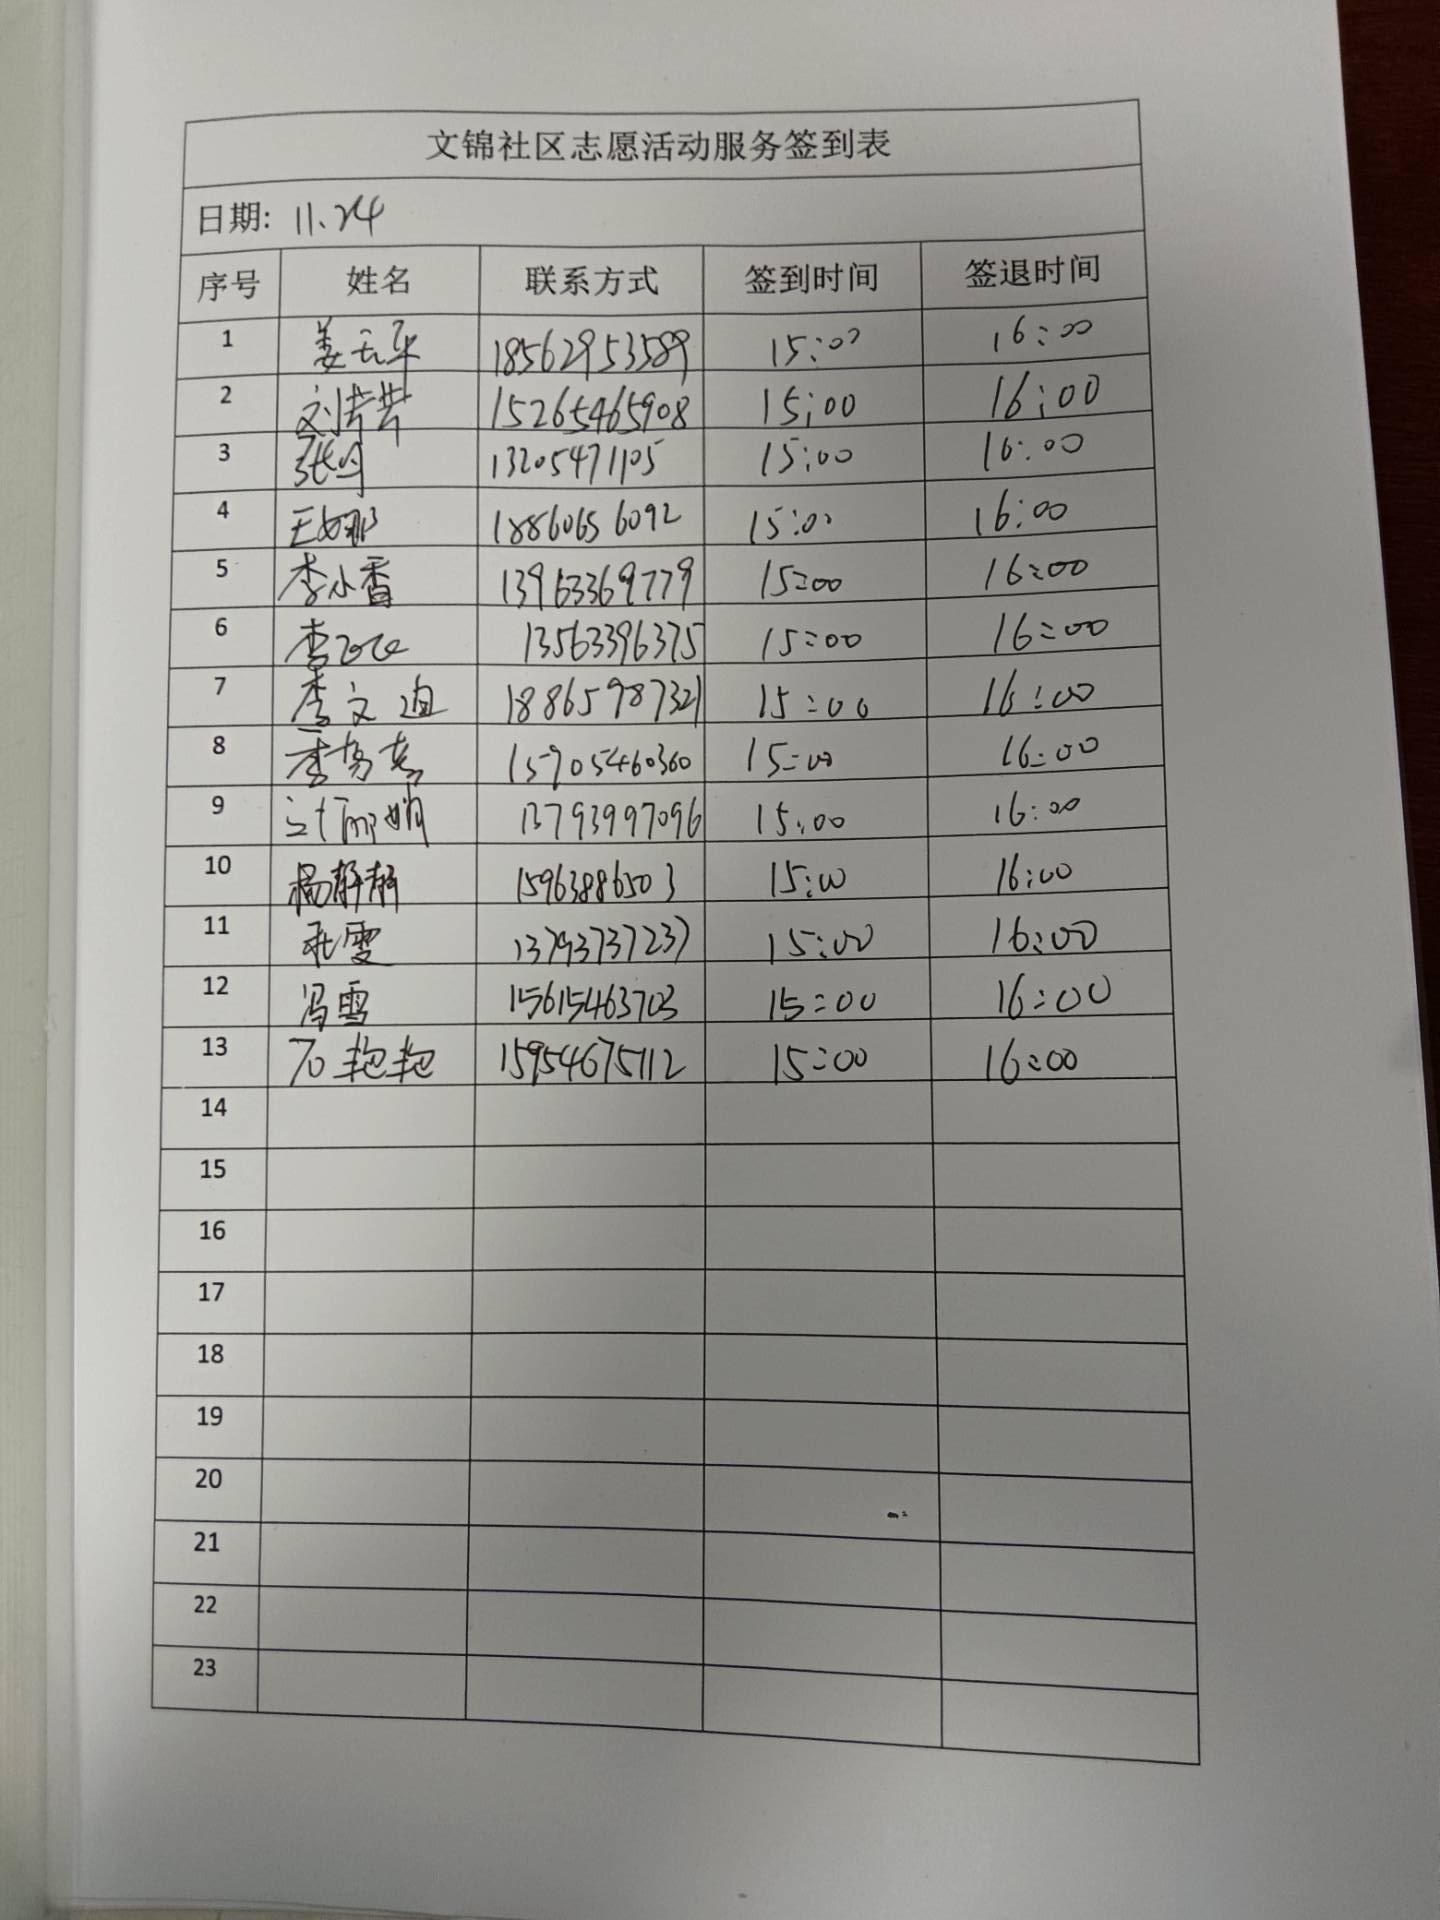 文锦社区志愿活动服务签到表
日期: 11.24
序号 姓名 联系方式 签到时间 签退时间
1 18562953589 15:00 16:00
2 15265465908 15:00 16:00
3 13205471105 15:00 16:00
4 王娜 18860656092 15:00 16:00
5 李小香 13963369779 15:00 16:00
6 13563396375 15:00 16:00
7 李文迪 18865987321 15:00 16:00
8 15905460360 15:00 16:00
9 13793997096 15:00 16:00
10 杨静静 15963886503 15:00 16:00
11 13793737237 15:00 16:00
12 冯雪 15615463703 15:00 16:00
13 艳艳 15954675112 15:00 16:00
14
15
16
17
18
19
20
21
22
23